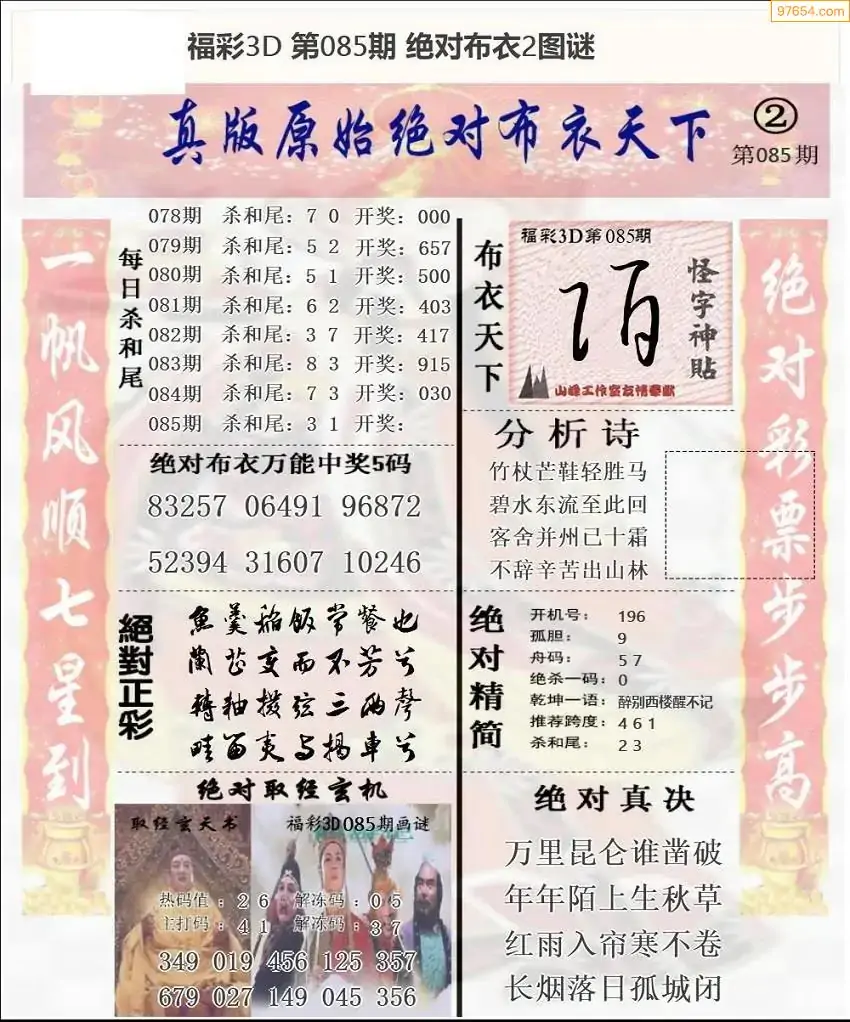 97654.com
福彩3D 第085期 绝对布衣2图谜
真版原始绝对布衣天下
②
第085期
一帆风顺七星到
每日杀和尾
078期 杀和尾：7 0 开奖：000
079期 杀和尾：5 2 开奖：657
080期 杀和尾：5 1 开奖：500
081期 杀和尾：6 2 开奖：403
082期 杀和尾：3 7 开奖：417
083期 杀和尾：8 3 开奖：915
084期 杀和尾：7 3 开奖：030
085期 杀和尾：3 1 开奖：
绝对布衣万能中奖5码
83257 06491 96872
52394 31607 10246
絕對正彩
魚羹稻饭常餐也
蘭芷变而不芳兮
轉轴撥弦三两聲
畦留夷与揭車兮
绝对取经玄机
取经玄天书
福彩3D085期画谜
热码值：2 6 解冻码：0 5
主打码：4 1 解冻码：3 7
349 019 456 125 357
679 027 149 045 356
布衣天下
福彩3D第085期
怪字神貼
山峰工作室友情奉献
分析诗
竹杖芒鞋轻胜马
碧水东流至此回
客舍并州已十霜
不辞辛苦出山林
绝对精简
开机号：196
孤胆：9
舟码：5 7
绝杀一码：0
乾坤一语：醉别西楼醒不记
推荐跨度：4 6 1
杀和尾：2 3
绝对真决
万里昆仑谁凿破
年年陌上生秋草
红雨入帘寒不卷
长烟落日孤城闭
绝对彩票步步高